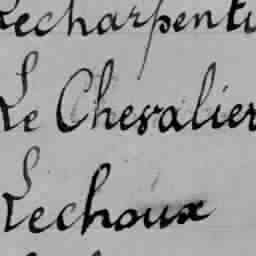 Lecharpenti
Le Chevalier
Lechoux